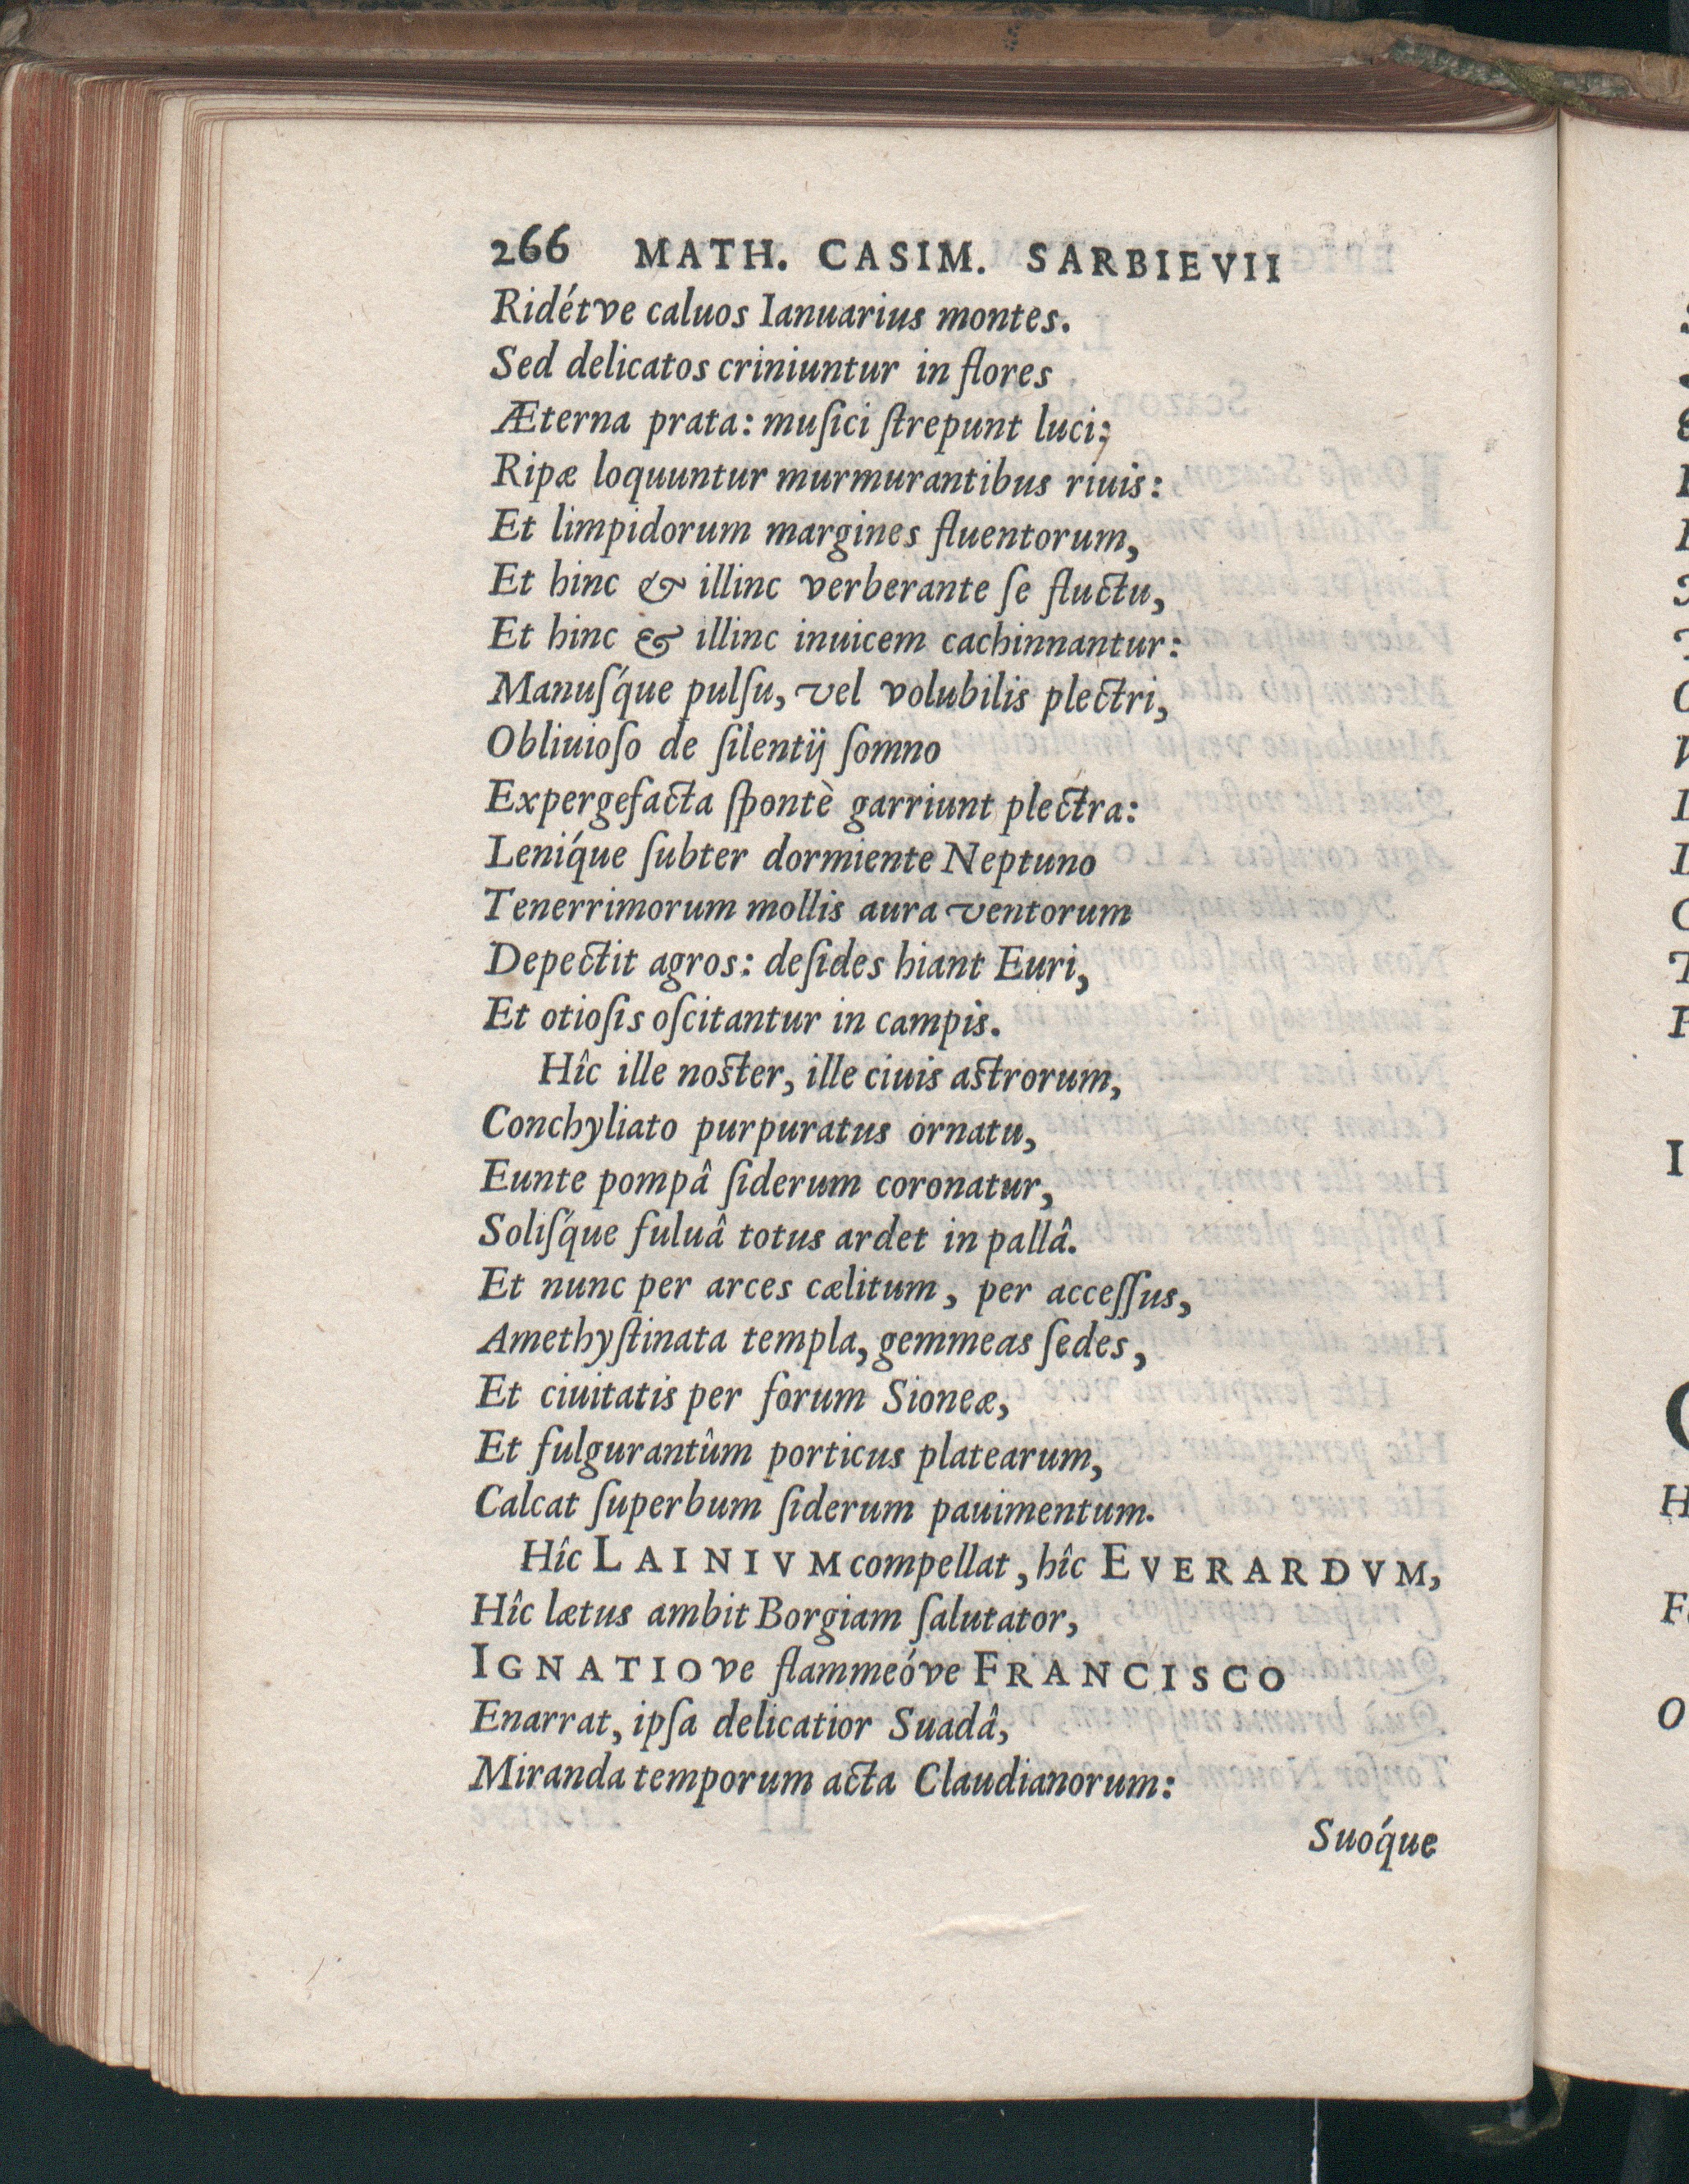 266 MATH. CASIM. SARBIEVII
Ridétve caluos Ianuarius montes.
Sed delicatos criniuntur in flores
Æterna prata: muſici ſtrepunt luci;
Ripæ loquuntur murmurantibus riuis:
Et limpidorum margines fluentorum,
Et hinc & illinc verberante ſe fluctu,
Et hinc & illinc inuicem cachinnantur:
Manuſq́ue pulſu, vel volubilis plectri,
Obliuioſo de ſilentij ſomno
Expergefacta ſpontè garriunt plectra:
Leniq́ue ſubter dormiente Neptuno
Tenerrimorum mollis aura ventorum
Depectit agros: deſides hiant Euri,
Et otioſis oſcitantur in campis.
Hîc ille noster, ille ciuis astrorum,
Conchyliato purpuratus ornatu,
Eunte pompâ ſiderum coronatur,
Soliſq́ue fuluâ totus ardet in pallâ.
Et nunc per arces cælitum, per acceſſus,
Amethyſtinata templa, gemmeas ſedes,
Et ciuitatis per forum Sioneæ,
Et fulgurantûm porticus platearum,
Calcat ſuperbum ſiderum pauimentum.
Hîc LAINIVM compellat, hîc EVERARDVM,
Hîc lætus ambit Borgiam ſalutator,
IGNATIOve flammeóve FRANCISCO
Enarrat, ipſa delicatior Suadâ,
Miranda temporum acta Claudianorum:
Suoq́ue